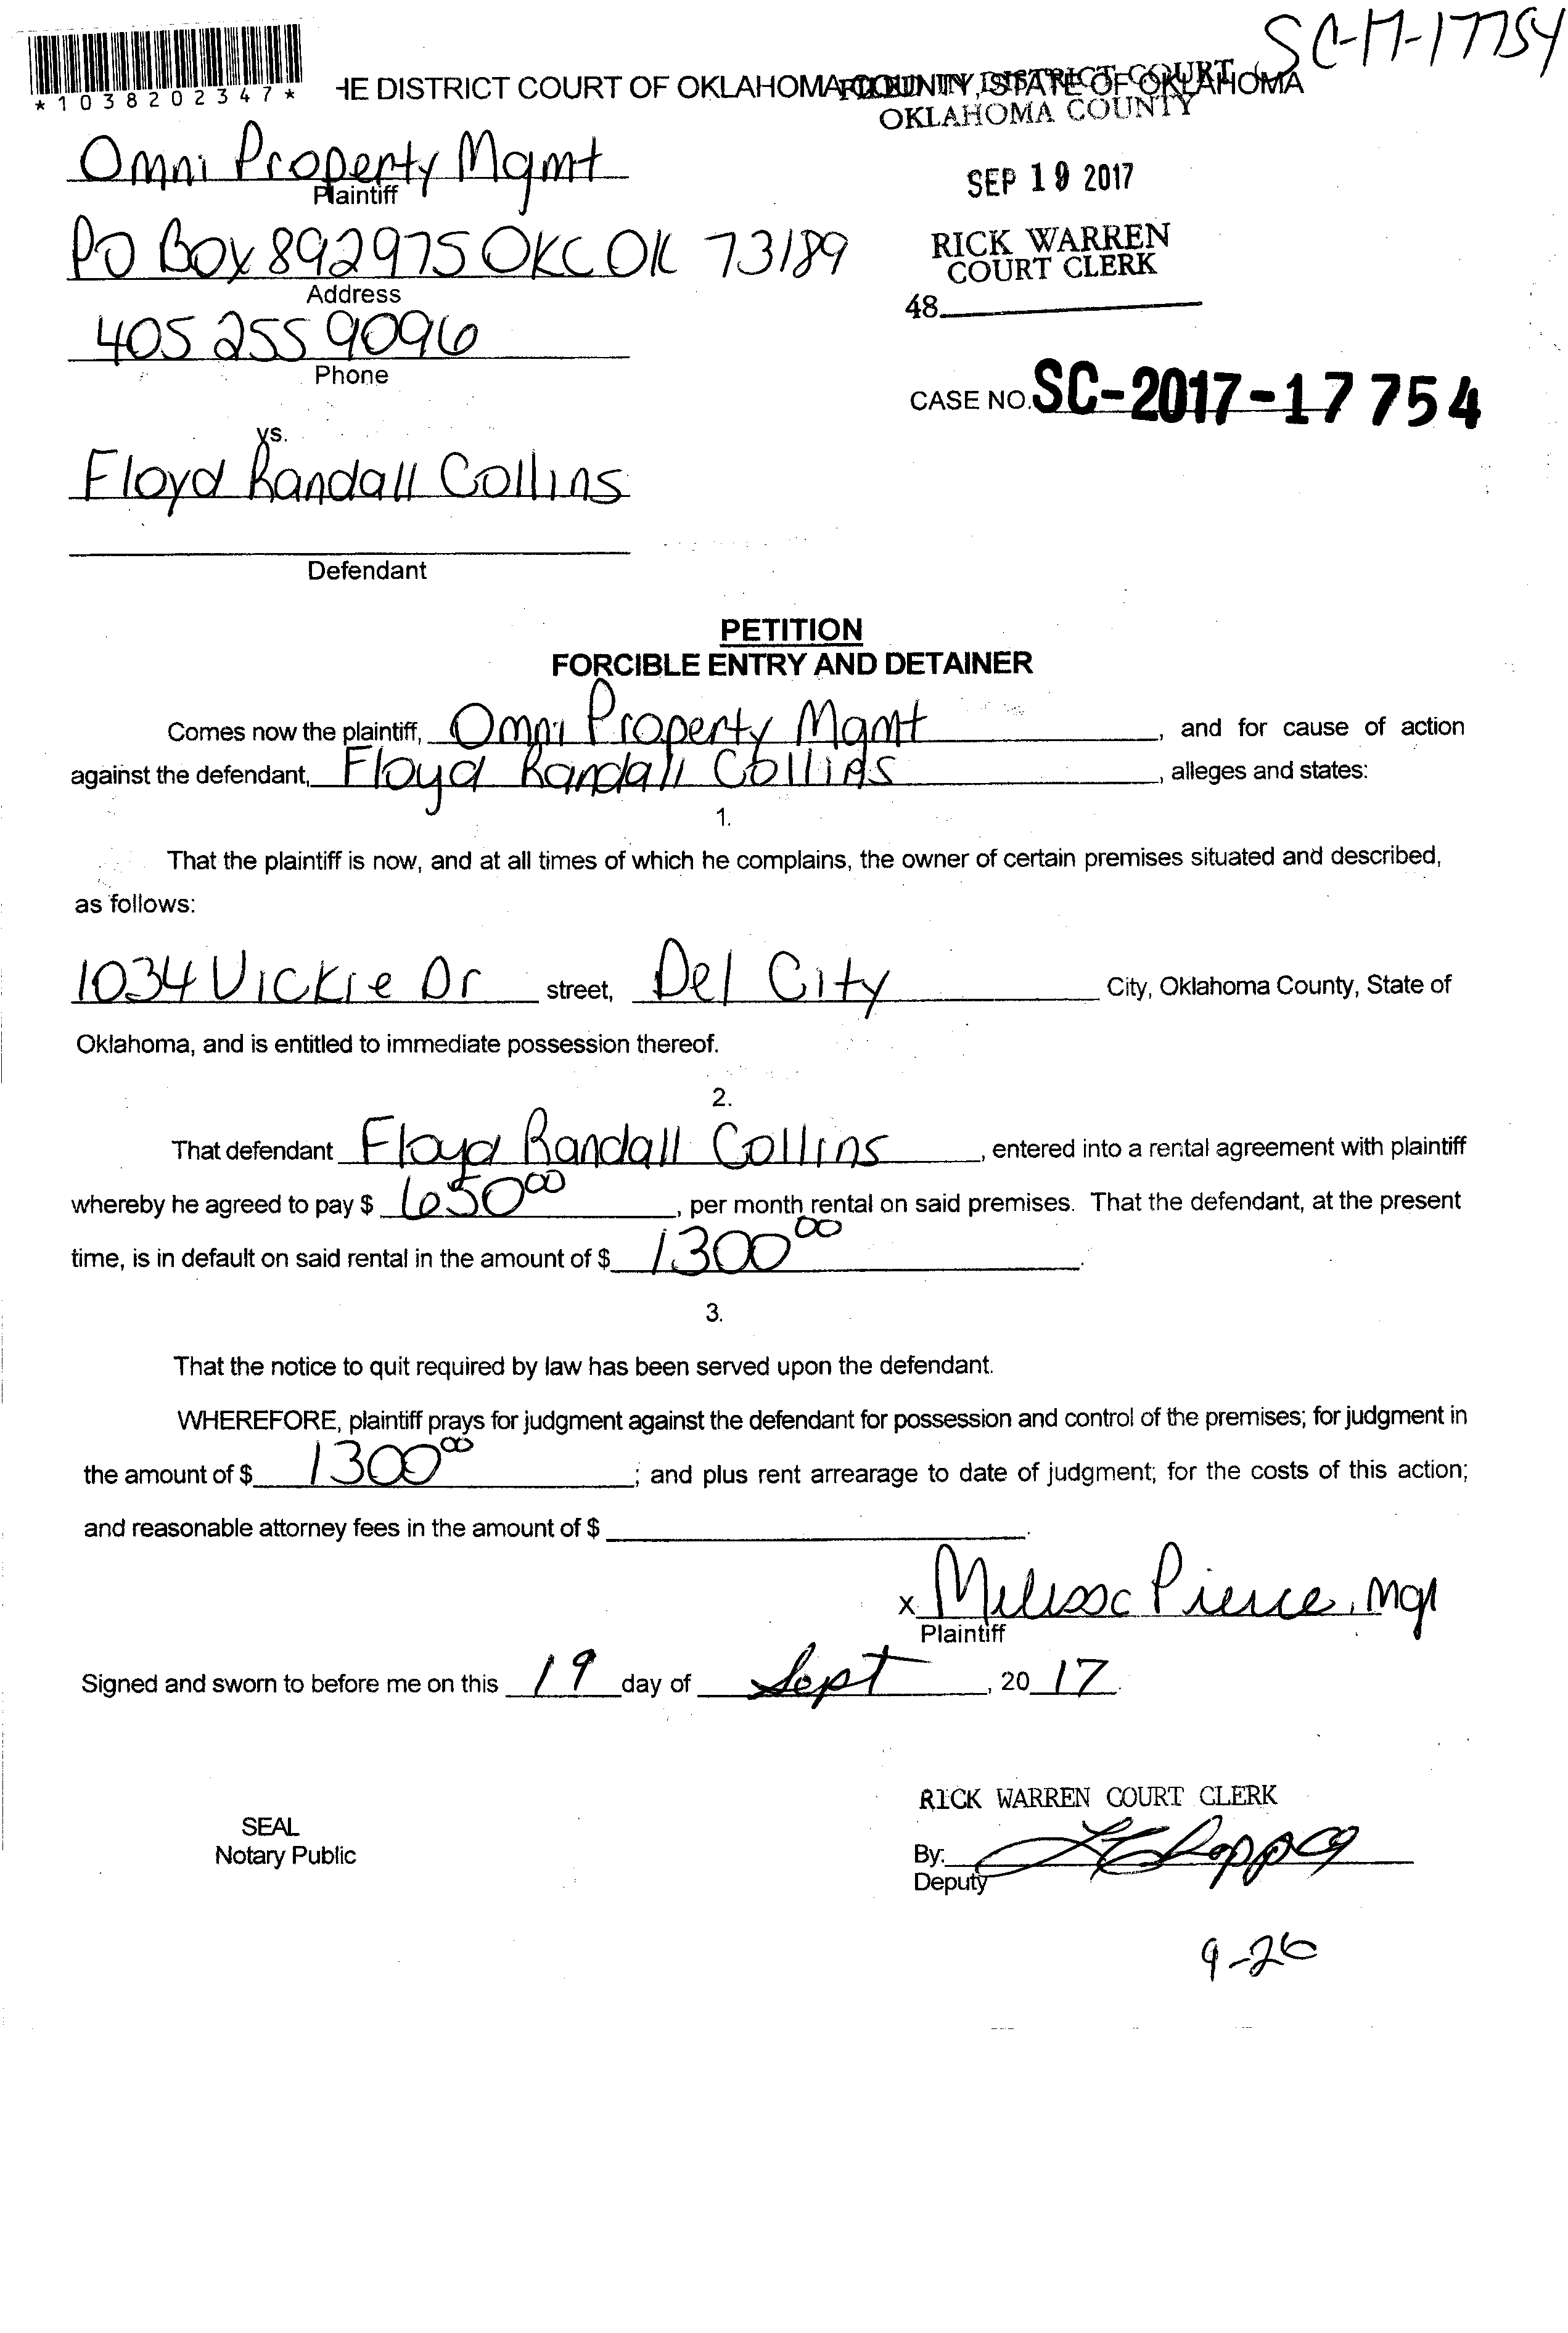 SC-17-17754
*1038202347*
HE DISTRICT COURT OF OKLAHOMA COUNTY, STATE OF OKLAHOMA
FILED IN DISTRICT COURT
OKLAHOMA COUNTY
Omni Property Mgmt
Plaintiff
SEP 19 2017
PO Box 892975 OKC OK 73189
Address
RICK WARREN
COURT CLERK
48
405 255 9096
Phone
CASE NO. SC-2017-17754
vs.
Floyd Randall Collins
Defendant
PETITION
FORCIBLE ENTRY AND DETAINER
Comes now the plaintiff, Omni Property Mgmt, and for cause of action
against the defendant, Floyd Randall Collins, alleges and states:
1.
That the plaintiff is now, and at all times of which he complains, the owner of certain premises situated and described,
as follows:
1034 Vickie Dr street, Del City City, Oklahoma County, State of
Oklahoma, and is entitled to immediate possession thereof.
2.
That defendant Floyd Randall Collins, entered into a rental agreement with plaintiff
whereby he agreed to pay $ 650 00, per month rental on said premises. That the defendant, at the present
time, is in default on said rental in the amount of $ 1300 00.
3.
That the notice to quit required by law has been served upon the defendant.
WHEREFORE, plaintiff prays for judgment against the defendant for possession and control of the premises; for judgment in
the amount of $ 1300 00; and plus rent arrearage to date of judgment; for the costs of this action;
and reasonable attorney fees in the amount of $
x Melissa Pierce, Mgr
Plaintiff
Signed and sworn to before me on this 19 day of Sept, 20 17.
RICK WARREN COURT CLERK
SEAL
Notary Public
By:
Deputy
9-26